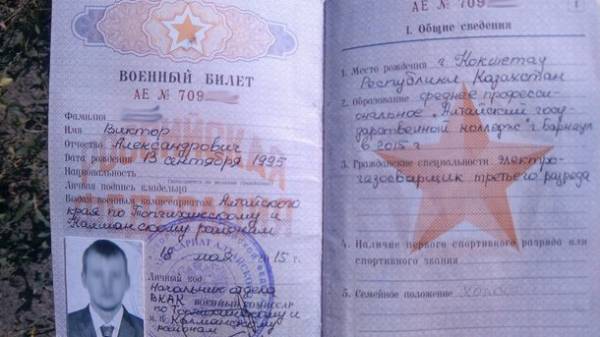 ВОЕННЫЙ БИЛЕТ
АЕ № 709
Фамилия
Имя Виктор
Отчество Александрович
Дата рождения 13 сентября 1995
Национальность
Личная подпись владельца
Выдан военным комиссариатом Алтайского
края по Топчихинскому и
Калманскому районам
18 мая 15 г.
Личный код
Начальник отдела
ВКАК ВОЕННЫЙ КОМИССАР
по Топчихинскому и
Калманскому
районам
АЕ № 709
1
I. Общие сведения
1. Место рождения г. Кокшетау
Республики Казахстан
2. Образование среднее професси-
ональное "Алтайский госу-
дарственный колледж" г. Барнаул
в 2015 г
3. Гражданские специальности Электро-
газосварщик третьего разряда
4. Наличие первого спортивного разряда или
спортивного звания
5. Семейное положение холост